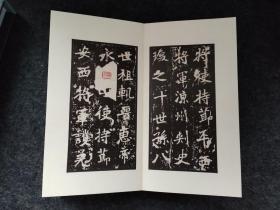 將使持節平西
將軍涼州刺史
瑍之十世孫八
世祖軌晉惠帝
永使持節
安西將軍護羌